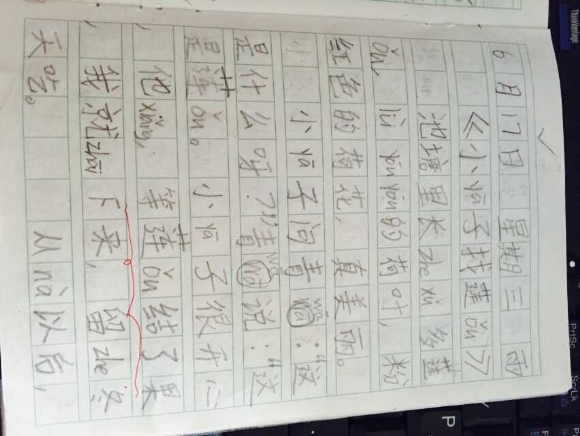 6月17日 星期三 雨
《小yā子找莲ǒu》
池塘里长zhe xǔ多莲
ǒu，lǜ yóu yóu的荷叶，粉
红色的荷花，真美丽。
小yā子问青wā："这
是什么呀？"青wā说："这
是莲ǒu。小yā子很开心
他xiǎng，等莲ǒu结了果
，我就zhāi下来，留zhe冬
天吃。 从nà以后，
PrtSc
ScrLk
P